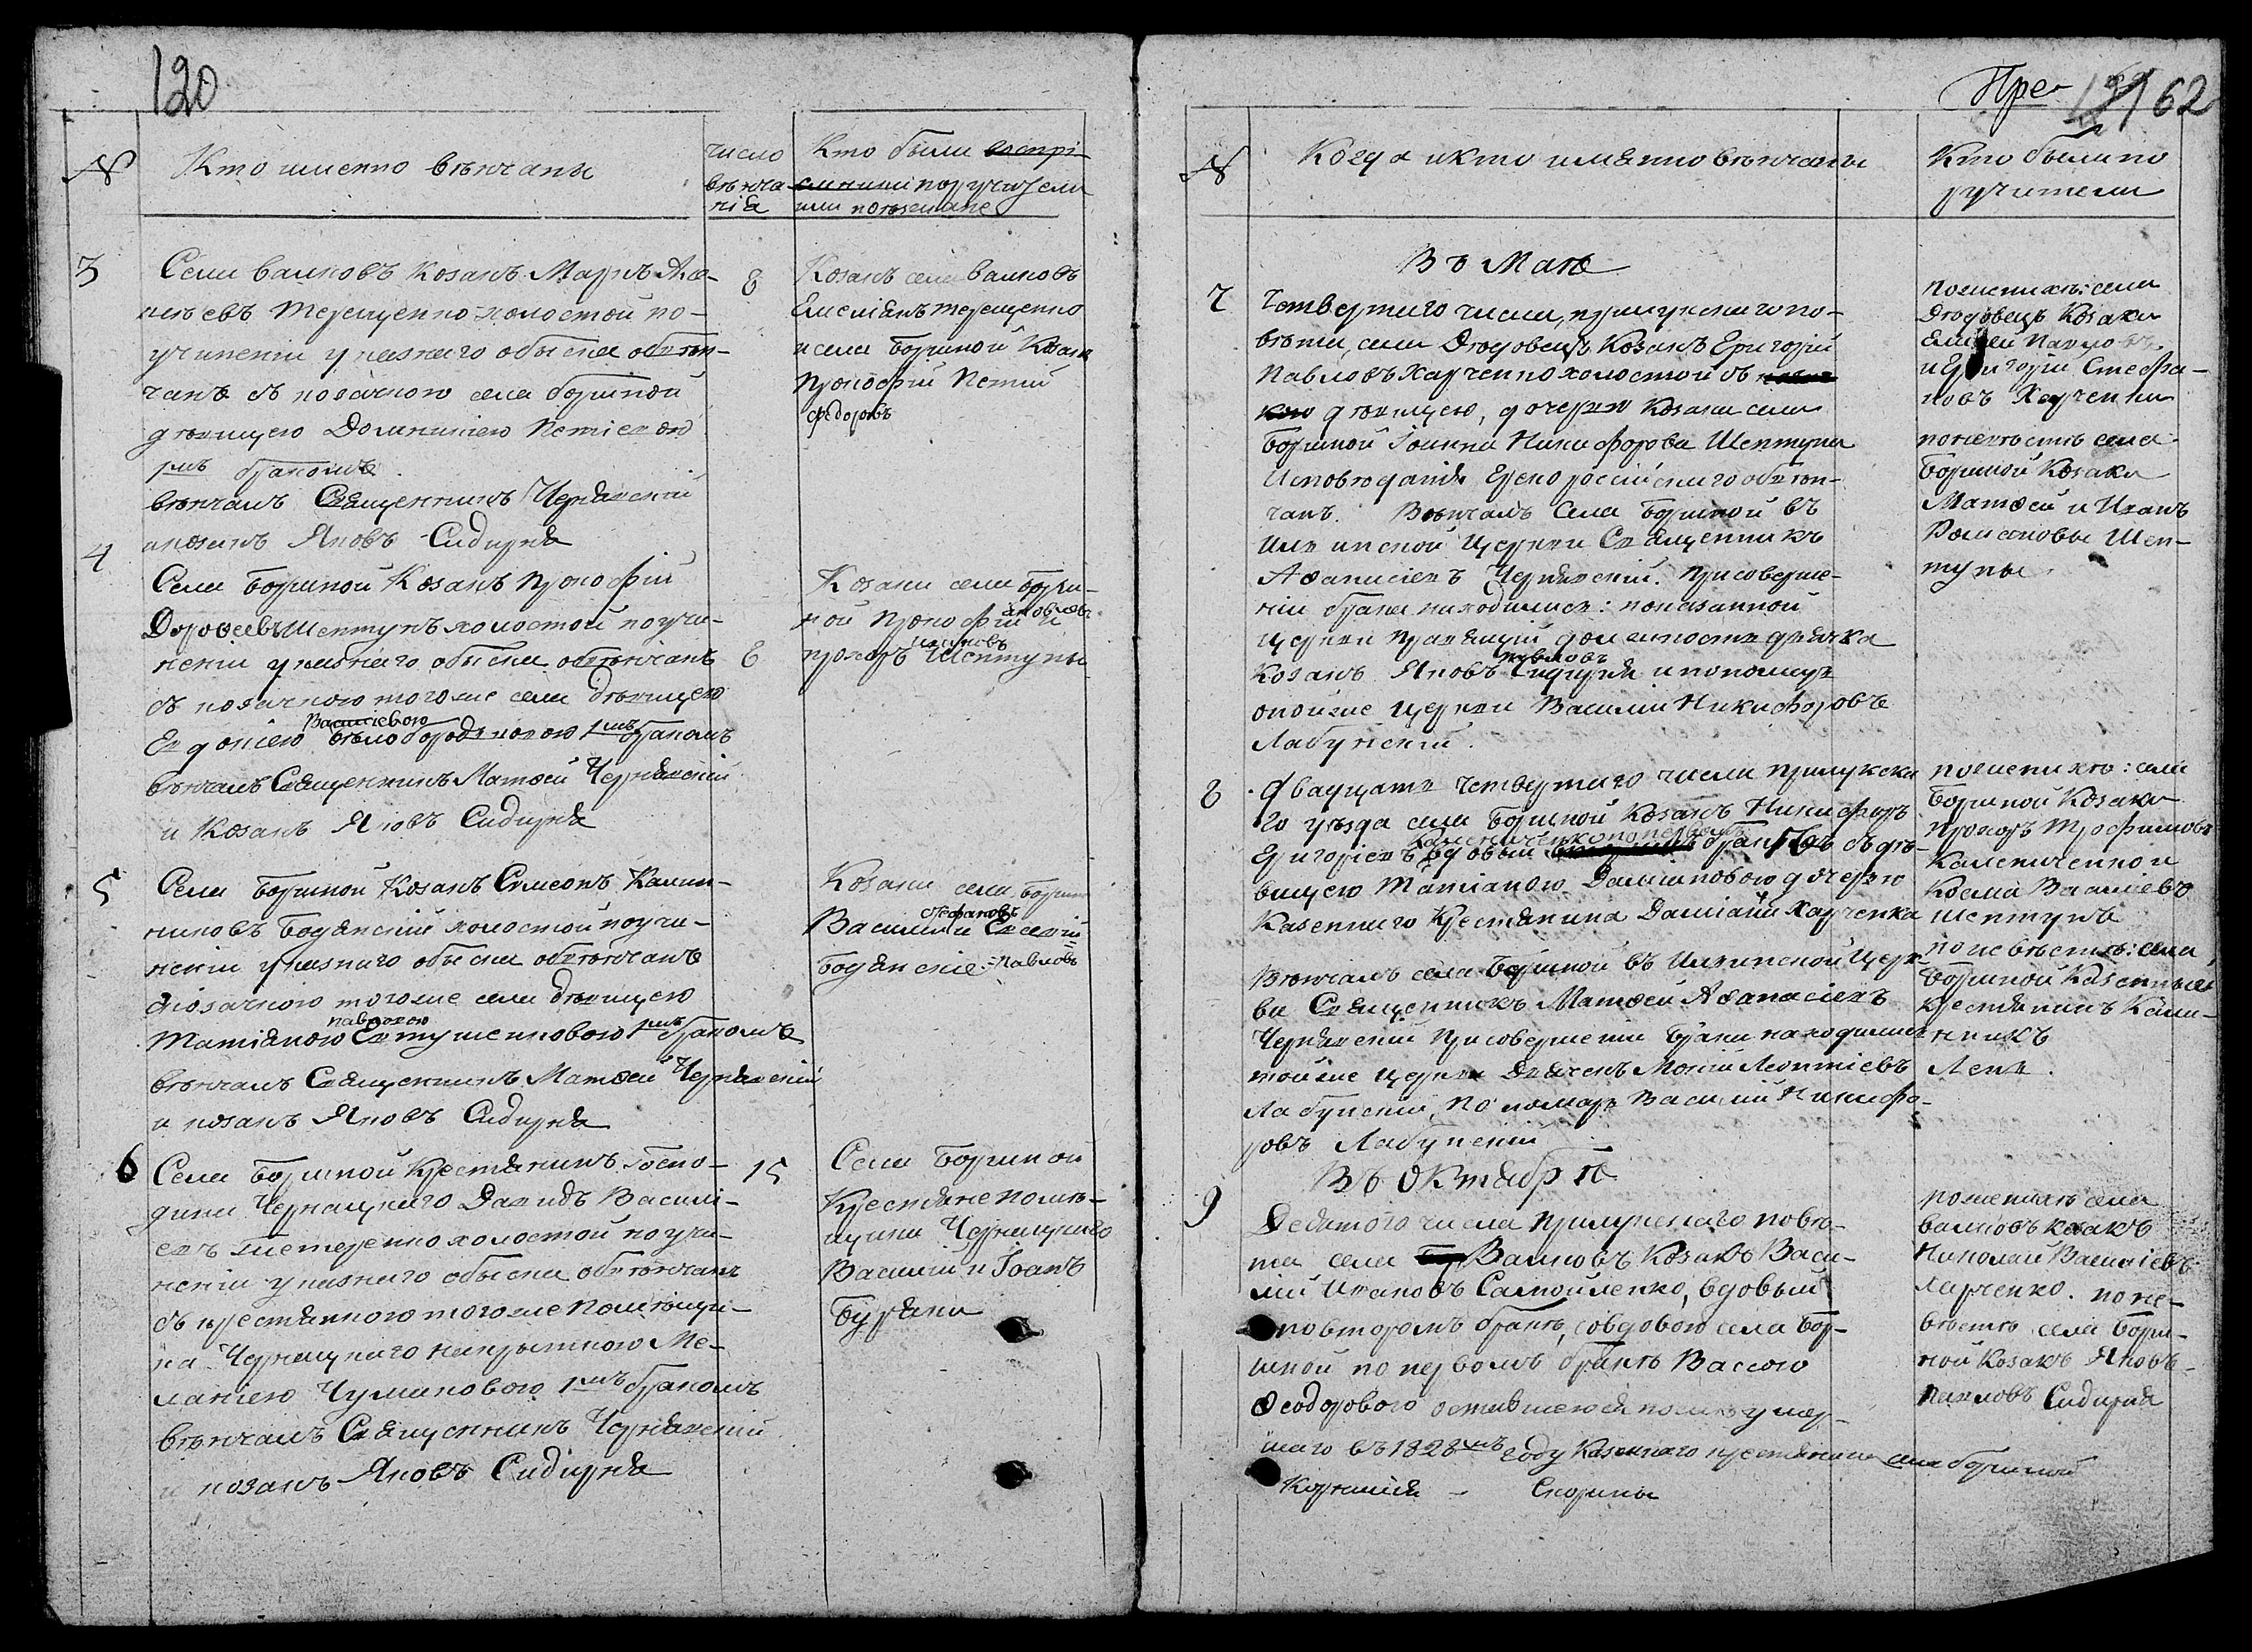 120
№
Кто именно вѣнчаны
число
вѣнча-
нія
Кто были воспрі-
емники поручители
или поѣзжане
3
Села Валковъ Козакъ Маркъ Але-
ксѣевъ Терещенко холостой по-
учиненіи указнаго обыска обвѣн-
чанъ съ козачкою села Боршной
дѣвицею Домникіею Петіевою
1мъ бракомъ.
вѣнчалъ Священникъ Чернявскій
и козакъ Яковъ Сидиряка
8
Козакъ села Валковъ
Емеліянъ терещенко
и села Боршной Козакъ
Прокофій Петій
Федоровъ
4
Села Боршной Козакъ Прокофій
Дорофеевъ Шептунъ холостой по учи-
неніи указнаго обыска обвѣнчанъ
съ козачкою тогоже села дѣвицею
Василіевою
Евдокіею Бѣлобородьковою 1мъ бракомъ
вѣнчалъ Священникъ Матѳей Чернявскій
и Козакъ Яковъ Сидиряка
8
Козаки села Борш-
ной Прокофій Яковлевъ и
прохоръ Шептуны
5
Села Боршной Козакъ Симеонъ Калин-
никовъ Бодянскій холостой по учи-
неніи указнаго обыска обвѣнчанъ
с козачкою тогоже села дѣвицею
павловою
Татіаною Евтушенковою 1мъ бракомъ
вѣнчалъ Священникъ Матѳей Чернявскій
и козакъ Яковъ Сидиряка
Козаки села Боршн
Стефановъ
Василій и Евсевій
Бодянскіе = Павловъ
6
Села Боршной Крестянинъ Госпо-
дина Чернацкаго Давидъ Василі-
евъ холостой по учи-
неніи указнаго обыска обвѣнчанъ
съ крестянкою тогоже Помѣщи-
ка Чернацкаго Ме-
ланіею Чумаковою 1мъ бракомъ
вѣнчалъ Священникъ Чернявскій
и козакъ Яковъ Сидиряка
15
Села Боршной
Крестяне помѣ-
щика Чернацкаго
Василій и Іоанъ
Буряки
Пре-
121 62
№
Когда и кто имянно вѣнчаны
Кто были по
ручители
Въ Маѣ
7
Четвертаго числа, прилукскаго по-
вѣта, села Дѣдовецъ Козакъ Григорій
Павловъ Харченко холостой съ
дѣвицею, дочерью Козака села
Боршной Іоанна Никифорова Шептуна
Исповѣданія Грекороссійскаго обвѣн-
чанъ. Вѣнчалъ Села Боршной въ
Ильинской Церкви Священникъ
Афанасіевъ Чернявскій. При соверше-
ніи брака находились: показанной
Церкви правящій должность дьячка
павловъ
Козакъ Яковъ Сидиряка и пономарь
онойже Церкви Василій Никифоровъ
Лабунскій.
по женихѣ: села
Дѣдовецъ Козаки
Павловъ
и Григорій Стефа-
новъ Харченки
по невѣстѣ села
Боршной Козаки
Матѳей и Иванъ
Романовы Шеп-
туны.
8
Двадцать четвертаго числа Прилукска
го уѣзда села Боршной Козакъ Никифоръ
Каленченко по первомъ
Григоріевъ вдовый бракѣ съ дѣ-
вицею Татіаною Даміановою дочерью
Казеннаго Крестянина Даміана Харченка
Вѣнчалъ села Боршной въ Ильинской Церк-
ви Священникъ Матѳей Афанасіевъ
Чернявскій При совершеніи брака находились
тойже церкви Дьячекъ Мокій Леонтіевъ
Лабунскій, Пономарь Василій Никифо-
ровъ Лабунскій
по женихѣ: села
Боршной Козаки
Прохоръ Трофимовъ
Каленченко и
Косма Василіевъ
Шептунъ
по невѣстѣ: села
Боршной Казенный
крестянинъ Кали-
никъ
Лень.
Въ Октябрѣ
9
Девятого числа Прилукскаго повѣ-
та села Валковъ Козакъ Васи-
лій Ивановъ Самойленко, вдовый
по второмъ бракѣ, со вдовою села Бор-
шной по первомъ бракѣ Вассою
Ѳеодоровою оставшеюся послѣ умер-
шаго въ 1828мъ году Казеннаго крестянина села боршной
Корнилія - Скорины
по женихѣ села
Валковъ козакъ
Николай Василіевъ
Харченко. по не-
вѣстѣ села Борш-
ной Козакъ Яковъ
Павловъ Сидиряка